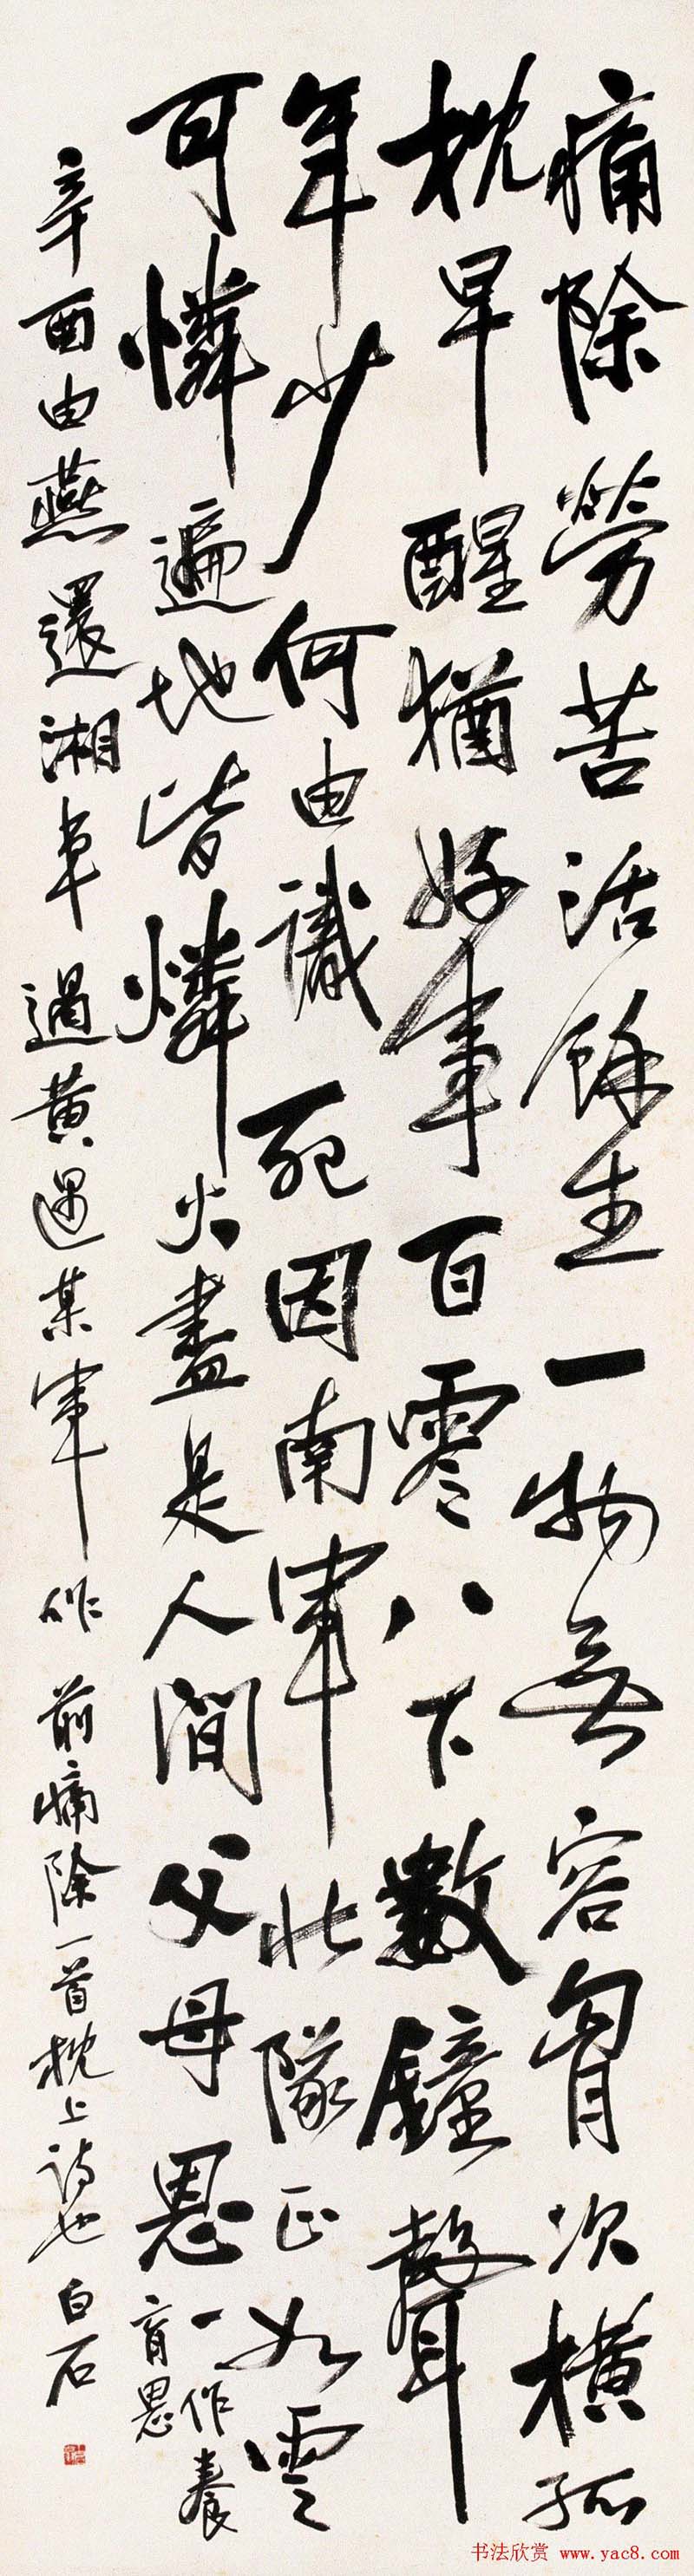 痛除勞苦活餘生一物無容胷次橫孤
枕早醒猶好事百零八下數鐘聲
年少何由識死因南軍北隊正如雲
可憐遍地皆燐火盡是人間父母恩
一作養
育恩
辛酉由燕還湘車過黃遇某軍作 前痛除一首枕上詩也 白石
书法欣赏 www.yac8.com